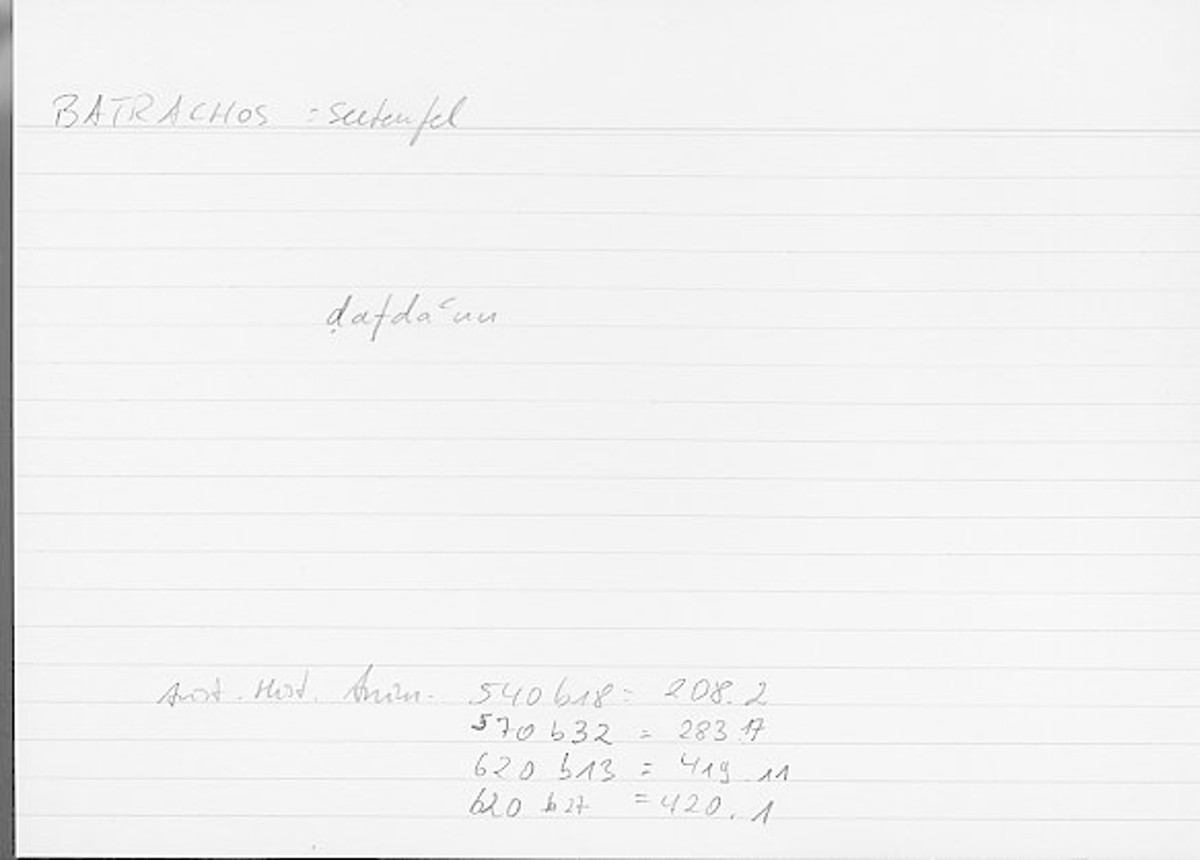 BATRACHOS = Seeteufel
ḍafdaʿun
Arist. Hist. Anim. 540 b18 = 208.2
570 b32 = 283.17
620 b13 = 419.11
620 b27 = 420.1